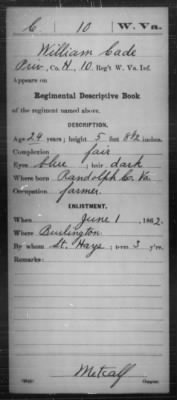 C | 10 | W. Va.
William Cade
Priv, Co. H, 10 Reg't W. Va. Inf.
Appears on
Regimental Descriptive Book
of the regiment named above.
DESCRIPTION.
Age 24 years; height 5 feet 8½ inches.
Complexion fair
Eyes blue ; hair dark
Where born Randolph C. Va
Occupation farmer
ENLISTMENT.
When June 1 , 1862.
Where Burlington
By whom St. Hays ; term 3 y'rs.
Remarks:
Metcalf
Copyist.